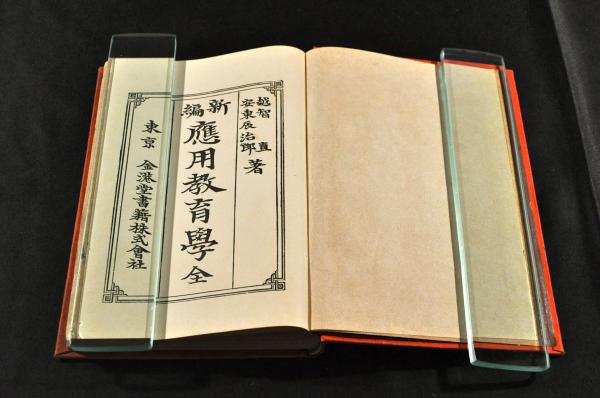 越智直
安東辰治郎
著
新編
應用教育學 全
東京 金港堂書籍株式會社